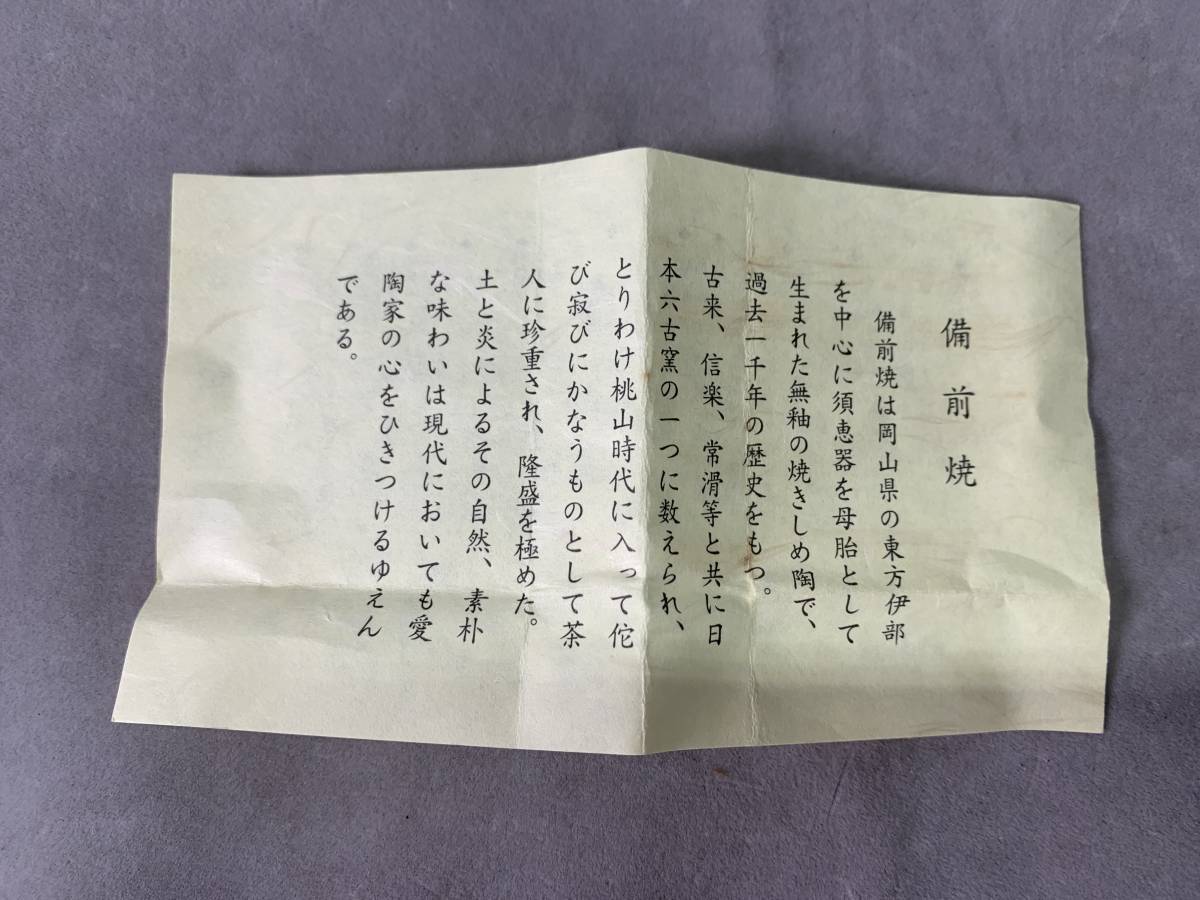 備前焼
備前焼は岡山県の東方伊部
を中心に須恵器を母胎として
生まれた無釉の焼きしめ陶で、
過去一千年の歴史をもつ。
古来、信楽、常滑等と共に日
本六古窯の一つに数えられ、
とりわけ桃山時代に入って佗
び寂びにかなうものとして茶
人に珍重され、隆盛を極めた。
土と炎によるその自然、素朴
な味わいは現代においても愛
陶家の心をひきつけるゆえん
である。